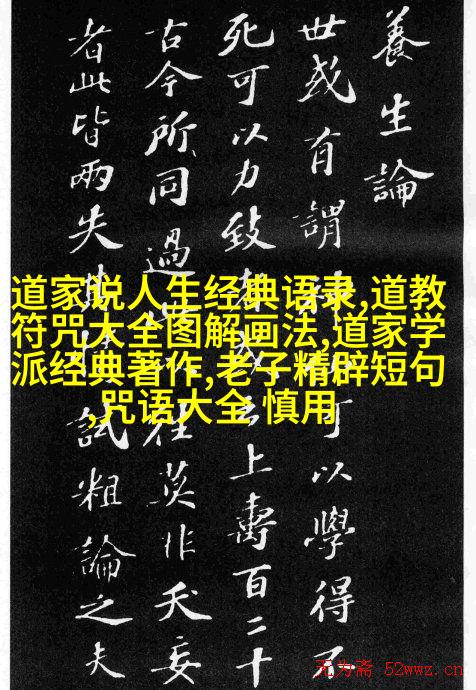 養生論
世或有謂可以學得不
死可以力致上壽百二十
古今所同過往莫非夭妄
者此皆兩失試粗論之夫
道家说人生经典语录,道教
符咒大全图解画法,道家学
派经典著作,老子精辟短句
,咒语大全 慎用
无为斋 52wwz.cn